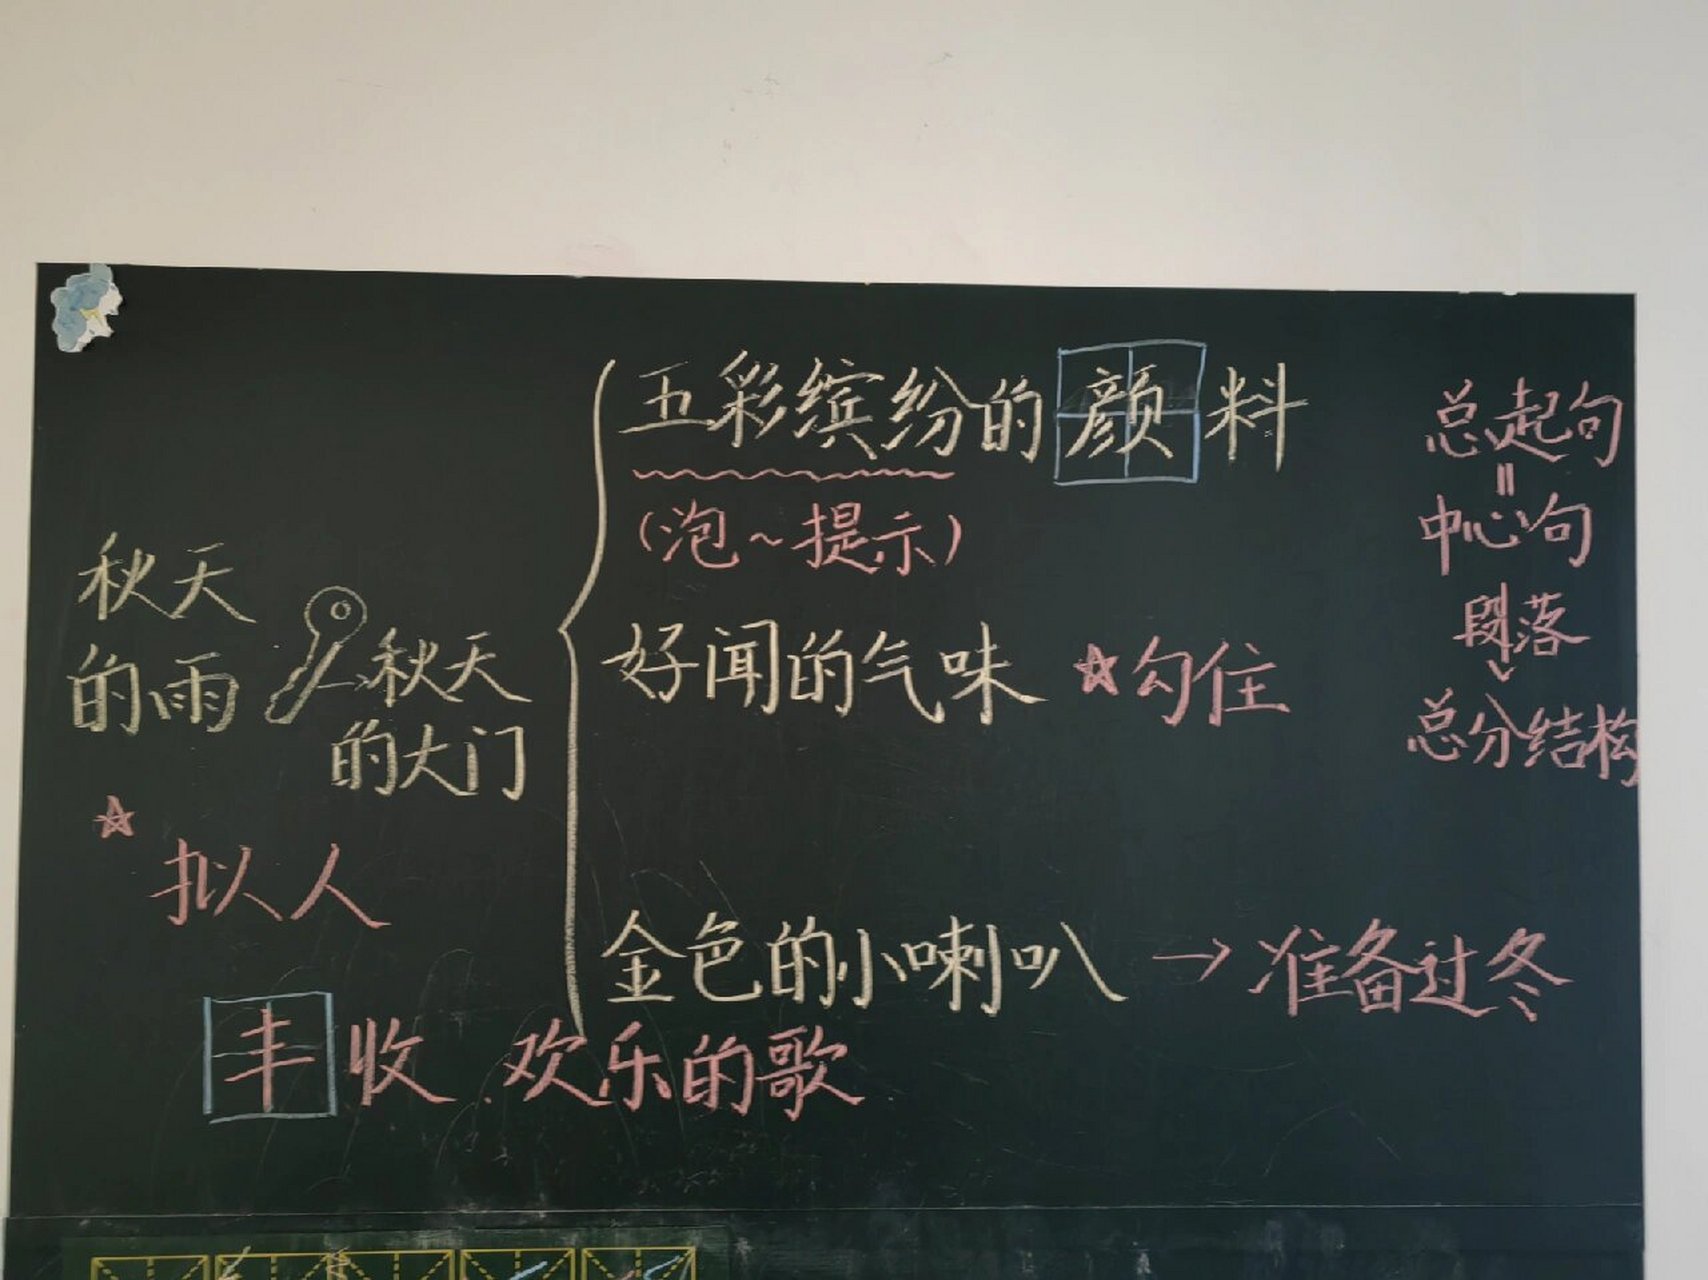 秋天
的雨
秋天
的大门
☆
拟人
五彩缤纷的颜料
(泡~提示)
好闻的气味 ☆勾住
金色的小喇叭 → 准备过冬
丰收 欢乐的歌
总起句
=
中心句
段落
↓
总分结构